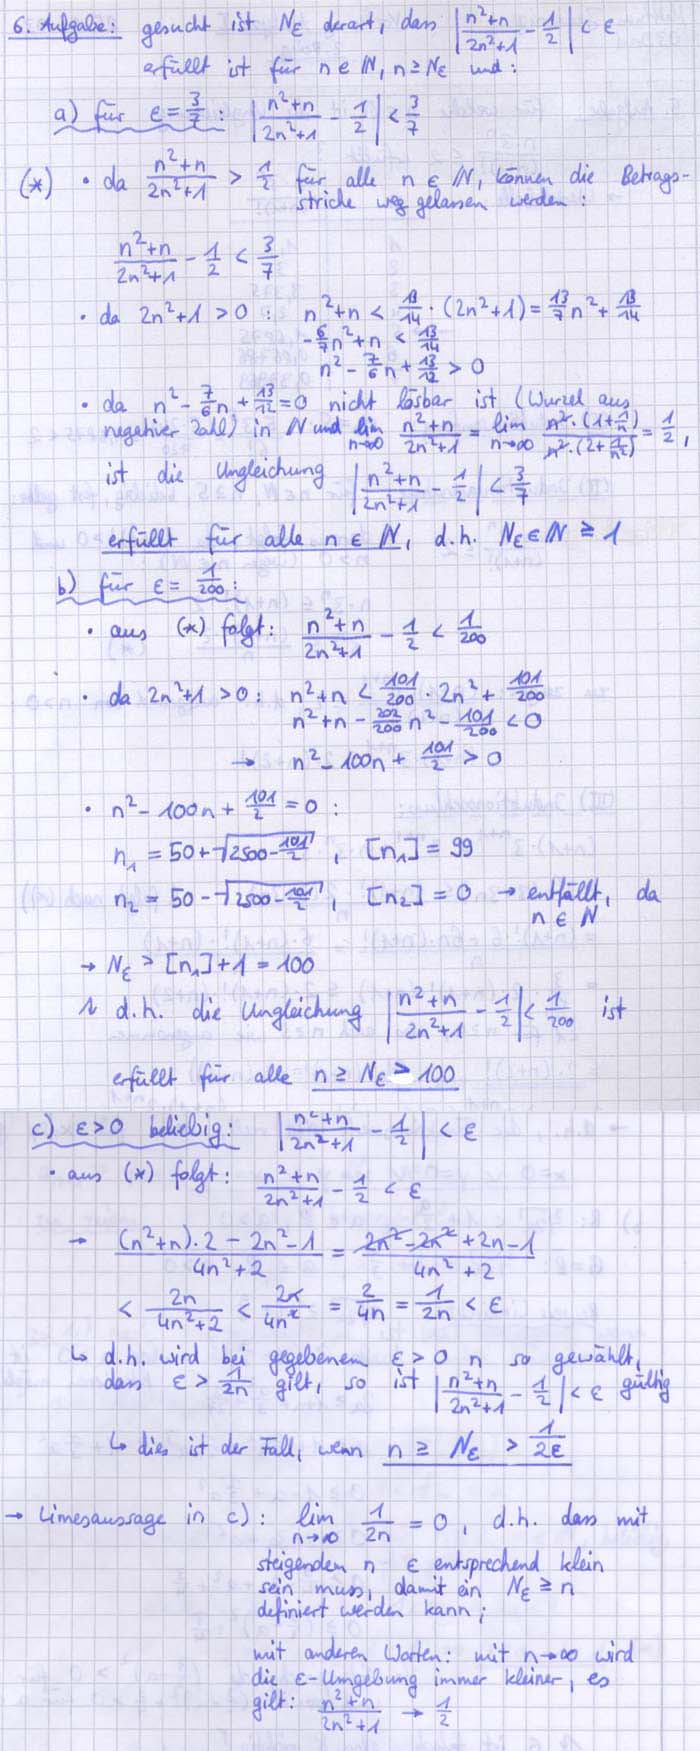 6. Aufgabe: gesucht ist Nε derart, dass |(n²+n)/(2n²+1) - 1/2| < ε
erfüllt ist für n ∈ ℕ, n ≥ Nε und:
a) für ε = 3/7 : |(n²+n)/(2n²+1) - 1/2| < 3/7
(*) • da (n²+n)/(2n²+1) > 1/2 für alle n ∈ ℕ, können die Betrags-
striche weg gelassen werden :
(n²+n)/(2n²+1) - 1/2 < 3/7
• da 2n²+1 > 0 : n²+n < 13/14 · (2n²+1) = 13/7 n² + 13/14
-6/7 n² + n < 13/14
n² - 7/6 n + 13/12 > 0
• da n² - 7/6 n + 13/12 = 0 nicht lösbar ist (Wurzel aus
negativer Zahl) in ℕ und lim n→∞ (n²+n)/(2n²+1) = lim n→∞ (n²·(1+1/n))/(n²·(2+1/n²)) = 1/2 ,
ist die Ungleichung |(n²+n)/(2n²+1) - 1/2| < 3/7
erfüllt für alle n ∈ ℕ, d.h. Nε ∈ ℕ ≥ 1
b) für ε = 1/200 :
• aus (*) folgt: (n²+n)/(2n²+1) - 1/2 < 1/200
• da 2n²+1 > 0 : n²+n < 101/200 · 2n² + 101/200
n²+n - 202/200 n² - 101/200 < 0
→ n² - 100n + 101/2 > 0
• n² - 100n + 101/2 = 0 :
n₁ = 50 + √(2500 - 101/2) , [n₁] = 99
n₂ = 50 - √(2500 - 101/2) , [n₂] = 0 → entfällt, da
n ∈ ℕ
→ Nε > [n₁] + 1 = 100
↳ d.h. die Ungleichung |(n²+n)/(2n²+1) - 1/2| < 1/200 ist
erfüllt für alle n ≥ Nε > 100
c) ε > 0 beliebig: |(n²+n)/(2n²+1) - 1/2| < ε
• aus (*) folgt: (n²+n)/(2n²+1) - 1/2 < ε
→ ((n²+n)·2 - 2n² - 1)/(4n²+2) = (2n² - 2n² + 2n - 1)/(4n²+2)
< 2n/(4n²+2) < 2n/4n² = 2/4n = 1/2n < ε
↳ d.h. wird bei gegebenem ε > 0 n so gewählt,
dass ε > 1/2n gilt, so ist |(n²+n)/(2n²+1) - 1/2| < ε gültig
↳ dies ist der Fall, wenn n ≥ Nε > 1/2ε
→ Limesaussage in c) : lim n→∞ 1/2n = 0 , d.h. dass mit
steigendem n ε entsprechend klein
sein muss, damit ein Nε ≥ n
definiert werden kann ;
mit anderen Worten: mit n→∞ wird
die ε-Umgebung immer kleiner, es
gilt: (n²+n)/(2n²+1) → 1/2